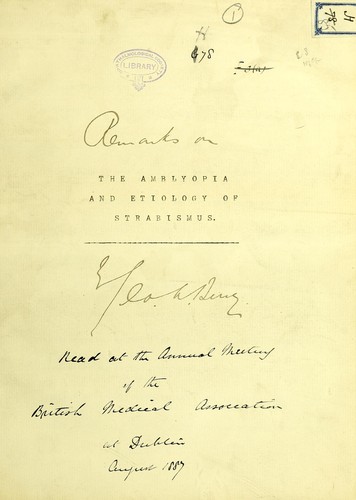 1
H
678
H
78
LIBRARY
Remarks on
THE AMBLYOPIA
AND ETIOLOGY OF
STRABISMUS.
By
Geo. A. Berry
Read at the Annual Meeting
of the
British Medical Association
at Dublin
August 1887